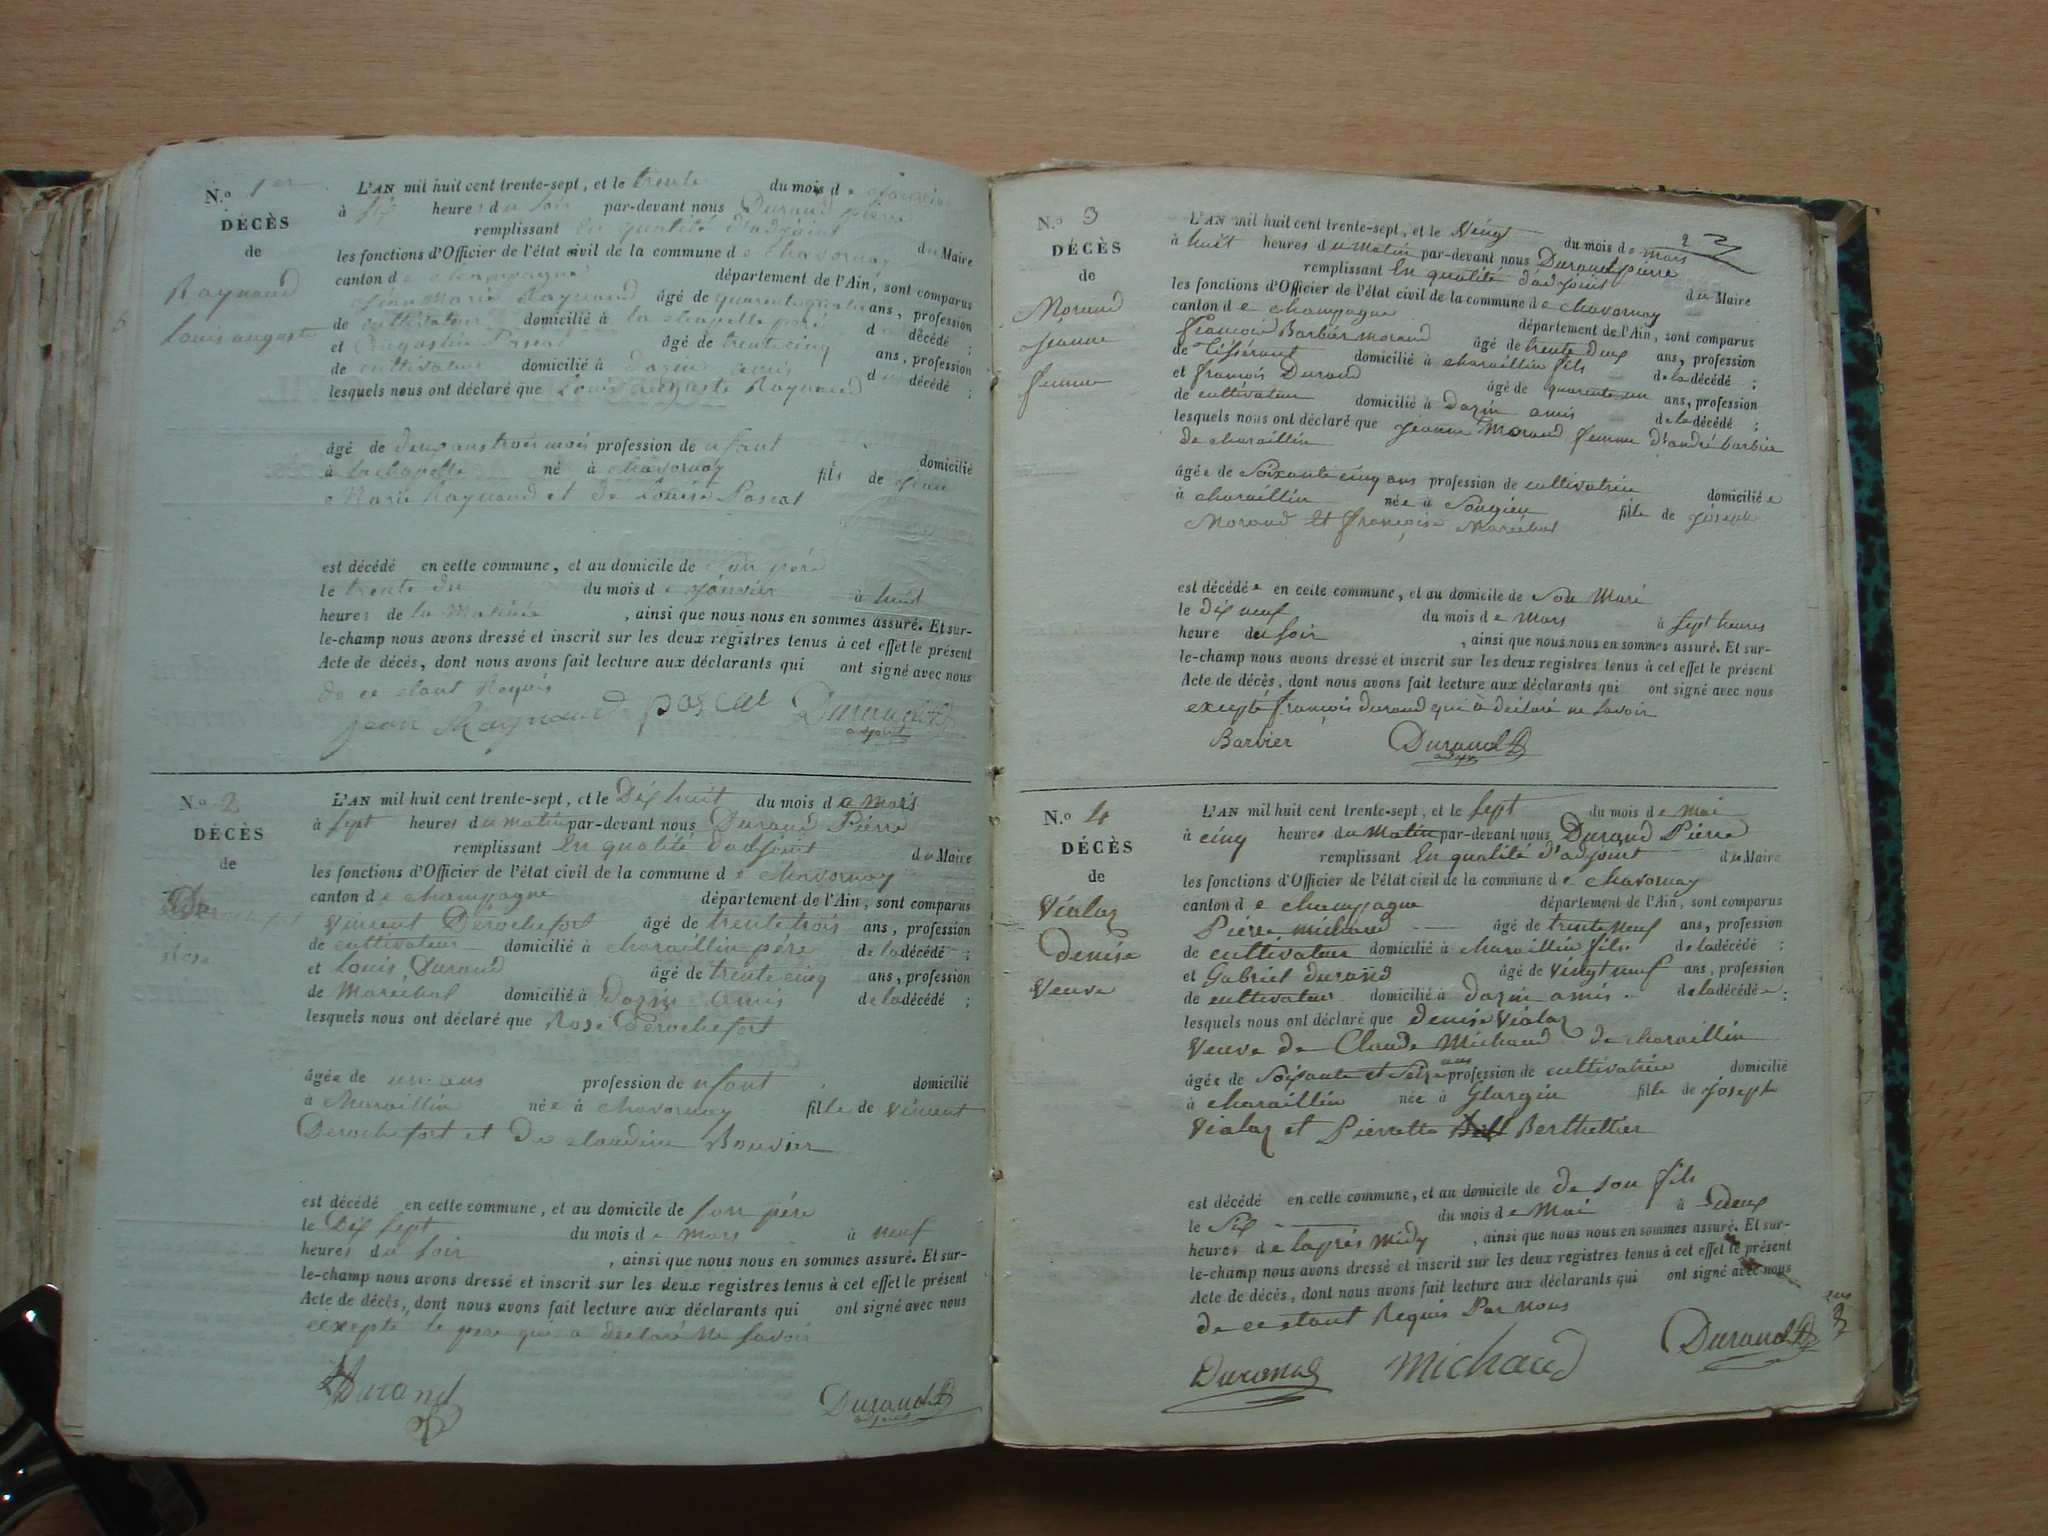 N.º 1er
DÉCÈS
de
Raynaud
Louis auguste
L'AN mil huit cent trente-sept, et le trente du mois de Janvier
à six heures du soir par-devant nous Durand pierre
remplissant En qualité d'adjoint du Maire
les fonctions d'Officier de l'état civil de la commune de Chavornay
canton de champagne département de l'Ain, sont comparus
Jean Marie Raynaud âgé de quarente quatre ans, profession
de cultivateur domicilié à la chapelle père du décédé ;
et Augustin Pascal âgé de trente cinq ans, profession
de cultivateur domicilié à Dazin amis du décédé ;
lesquels nous ont déclaré que Louis Auguste Raynaud
âgé de deux ans trois mois profession de nfant domicilié
à la chapelle né à chavornay fils de Jean
Marie Raynaud et de Louise Pascal
est décédé en cette commune, et au domicile de son père
le trente du du mois de Janvier à huit
heures de la Matinée, ainsi que nous nous en sommes assuré. Et sur-
le-champ nous avons dressé et inscrit sur les deux registres tenus à cet effet le présent
Acte de décès, dont nous avons fait lecture aux déclarants qui ont signé avec nous
de ce etant Requis
jean Raynaud pascal Durand
adjoint
N.º 2
DÉCÈS
de
Derochefort
Rose
L'AN mil huit cent trente-sept, et le Dix huit du mois de Mars
à sept heures du matin par-devant nous Durand Pierre
remplissant En qualité d'adjoint du Maire
les fonctions d'Officier de l'état civil de la commune de chavornay
canton de champagne département de l'Ain, sont comparus
vincent Derochefort âgé de trente trois ans, profession
de cultivateur domicilié à charaillin père de la décédé ;
et Louis Durand âgé de trente cinq ans, profession
de Maréchal domicilié à Dazin amis de la décédé ;
lesquels nous ont déclaré que Rose Derochefort
âgée de un ans profession de nfant domicilié
à charaillin née à chavornay fille de vincent
Derochefort et De claudine Bouvier
est décédé en cette commune, et au domicile de son père
le Dix sept du mois de mars à neuf
heures du soir, ainsi que nous nous en sommes assuré. Et sur-
le-champ nous avons dressé et inscrit sur les deux registres tenus à cet effet le présent
Acte de décès, dont nous avons fait lecture aux déclarants qui ont signé avec nous
excepté le pere qui a declaré ne savoir
Durand Durand
adjoint
2
N.º 3
DÉCÈS
de
Morand
Jeanne
femme
L'AN mil huit cent trente-sept, et le Vingt du mois de mars
à huit heures du Matin par-devant nous Durand pierre
remplissant En qualité d'adjoint du Maire
les fonctions d'Officier de l'état civil de la commune de chavornay
canton de champagne département de l'Ain, sont comparus
françois Barbier morand âgé de trente deux ans, profession
de Tisserant domicilié à charaillin fils de la décédé ;
et françois Durand âgé de quarente un ans, profession
de cultivateur domicilié à Dazin amis de la décédé ;
lesquels nous ont déclaré que Jeanne Morand femme d'andré barbier
de charaillin
âgée de Soixante cinq ans profession de cultivatrice domiciliée
à charaillin née à Songieu fille de Joseph
Morand Et françoise Maréchal
est décédée en cette commune, et au domicile de Son Mari
le Dix neuf du mois de Mars à sept heures
heure du soir, ainsi que nous nous en sommes assuré. Et sur-
le-champ nous avons dressé et inscrit sur les deux registres tenus à cet effet le présent
Acte de décès, dont nous avons fait lecture aux déclarants qui ont signé avec nous
excepté françois durand qui à déclaré ne savoir
Barbier Durand
adjt
N.º 4
DÉCÈS
de
Vialaz
Denise
Veuve
L'AN mil huit cent trente-sept, et le sept du mois de Mai
à cinq heures du Matin par-devant nous Durand Pierre
remplissant En qualité d'adjoint du Maire
les fonctions d'Officier de l'état civil de la commune de chavornay
canton de champagne département de l'Ain, sont comparus
Pierre michaud âgé de trente neuf ans, profession
de cultivateur domicilié à charaillin fils de la décédé ;
et Gabriel durand âgé de vingt neuf ans, profession
de cultivateur domicilié à dazin amis de la décédée ;
lesquels nous ont déclaré que denise Vialaz
Veuve de Claude Michaud de charaillin
âgée de Soixante et Seize ans profession de cultivatrice domicilié
à charaillin née à Glargin fille de Joseph
Vialaz et Pierrette Berthettier
est décédé en cette commune, et au domicile de de son fils
le Six du mois de Mai à Deux
heures de lapres Midy, ainsi que nous nous en sommes assuré. Et sur-
le-champ nous avons dressé et inscrit sur les deux registres tenus à cet effet le présent
Acte de décès, dont nous avons fait lecture aux déclarants qui ont signé avec nous
de ce etant Requis Par nous
Durand Michaud Durand